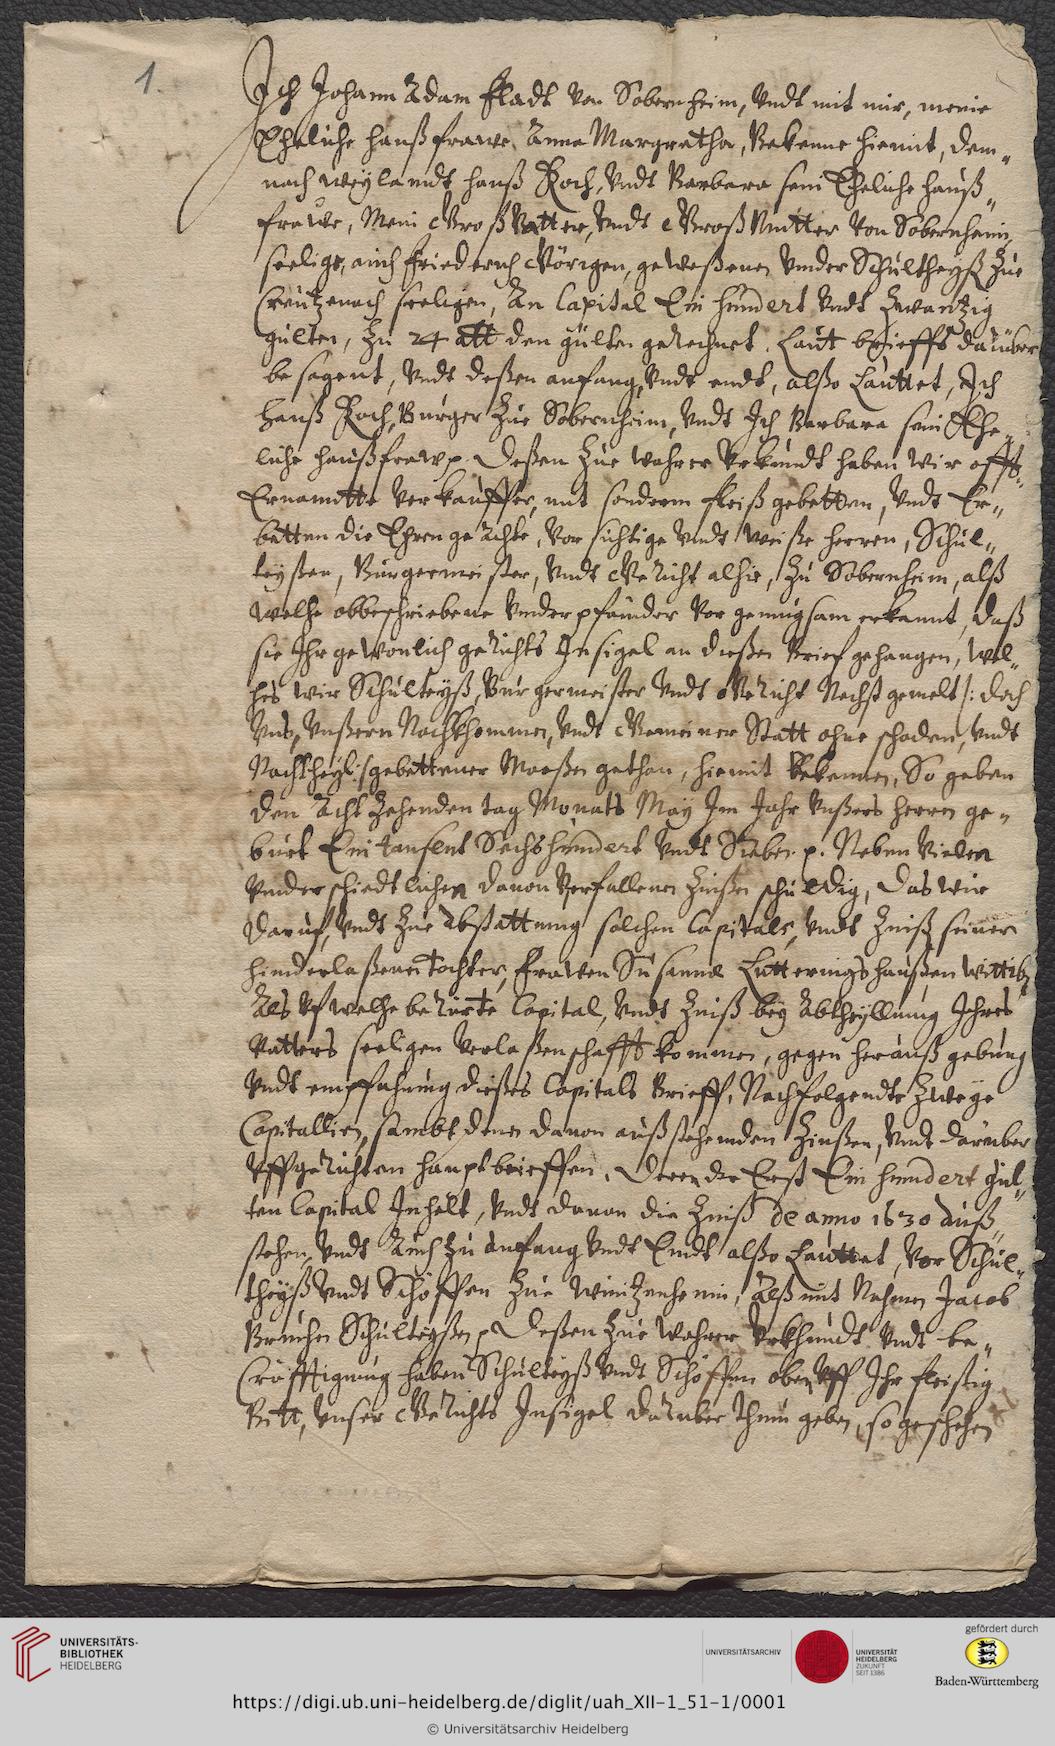 1.
Ich Johann Adam Fladt von Sobernheim, Vndt mit mir, meine
Eheliche haußfrawe Anna Margretha, Bekenne hiemit, dem„
nach weylandt hanß Koch, Vndt Barbara sein Eheliche hauß„
frawe, Mein Groß Vatter, Vndt Groß Mutter Von Sobernheim,
seelige, auch Friederich Görigen, geweßenen Vnder Schultheyß Zue
Creutzenach seeligen, An Capital Ein hundert Vndt Zwantzig
gulten, Zu 24 att den gülten gerechnet, Laut brieffs darüber
besagent, Vndt deßen anfang, Vndt endt, alßo Lauttet, Ich
Hanß Koch, Burger Zue Sobernheim, Vndt Ich Barbara sein Ehe„
liche haußfraw p. Deßen Zue wahrer Vrkundt haben wir offt„
Ernantte Verkauffer, mit sonderm fleiß gebetten, Vndt Er„
betten die Ehrengeachte, Vorsichtige Vndt weiße herren, Schul„
teyßen, Burgermeister, Vndt Gericht alhie, Zu Sobernheim, alß
welche obbeschriebene Vnderpfänder Vor genugsam erkannt, daß
sie Ihr gewonlich gerichts Insigel an dießen Brief gehangen, Wel„
ches wir Schulteyß, Burgermeister Vndt Gericht Nechst gemelt /: doch
Vns, Vnßern Nachkhommen, Vndt Gemeiner Statt ohne schaden, Vndt
Nachtheyl :/ gebettener Maaßen gethan, hiemit Bekennen, So geben
den Achtzehenden tag Monats May Im Jahr Vnßers herren ge„
burt Ein tausent Sechshundert Vndt Sieben p. Neben Vielen
Vnderschiedtlichen dauon Verfallenen Zinßen schuldig, das wir
daruf, Vndt Zue Abstattung solchen Capitals, Vndt Zinß seiner
hinderlaßenen tochter, frawen Susanna Lutteringshaußen, Wittib,
Als Vf welche berürte Capital, Vndt Zinß bey Abtheyllung Ihres
Vatters seeligen Verlaßenschafft kommen, gegen heraußgebung
Vndt empfahung dießes Capitals Brieff, Nachfolgendte Zweye
Capitallien, sambt denen dauon außstehenden Zinßen, Vndt darüber
Vffgerichten hauptbrieffen, Deren der Erst Ein hundert gül„
ten Capital Inhelt, Vndt dauon die Zinß de anno 1630 auß„
stehen, Vndt Auch Zu anfang Vndt Endt alßo Lauttet, Vor Schul„
theyß Vndt Schöffen Zue Wintzenheim, Alß mit Nahmen Jacob
Bruchen Schulteyßen p Deßen Zue Wahrer Vrkhundt Vndt be„
Cräfftigung haben Schulteyß Vndt Schöffen oben Vff Ihr fleisig
Bitt, Vnser Gerichts Insigel darüber thun geben, so geschehen
UNIVERSITÄTS-
BIBLIOTHEK
HEIDELBERG
UNIVERSITÄTSARCHIV
UNIVERSITÄT
HEIDELBERG
ZUKUNFT
SEIT 1386
gefördert durch
Baden-Württemberg
https://digi.ub.uni-heidelberg.de/diglit/uah_XII-1_51-1/0001
© Universitätsarchiv Heidelberg